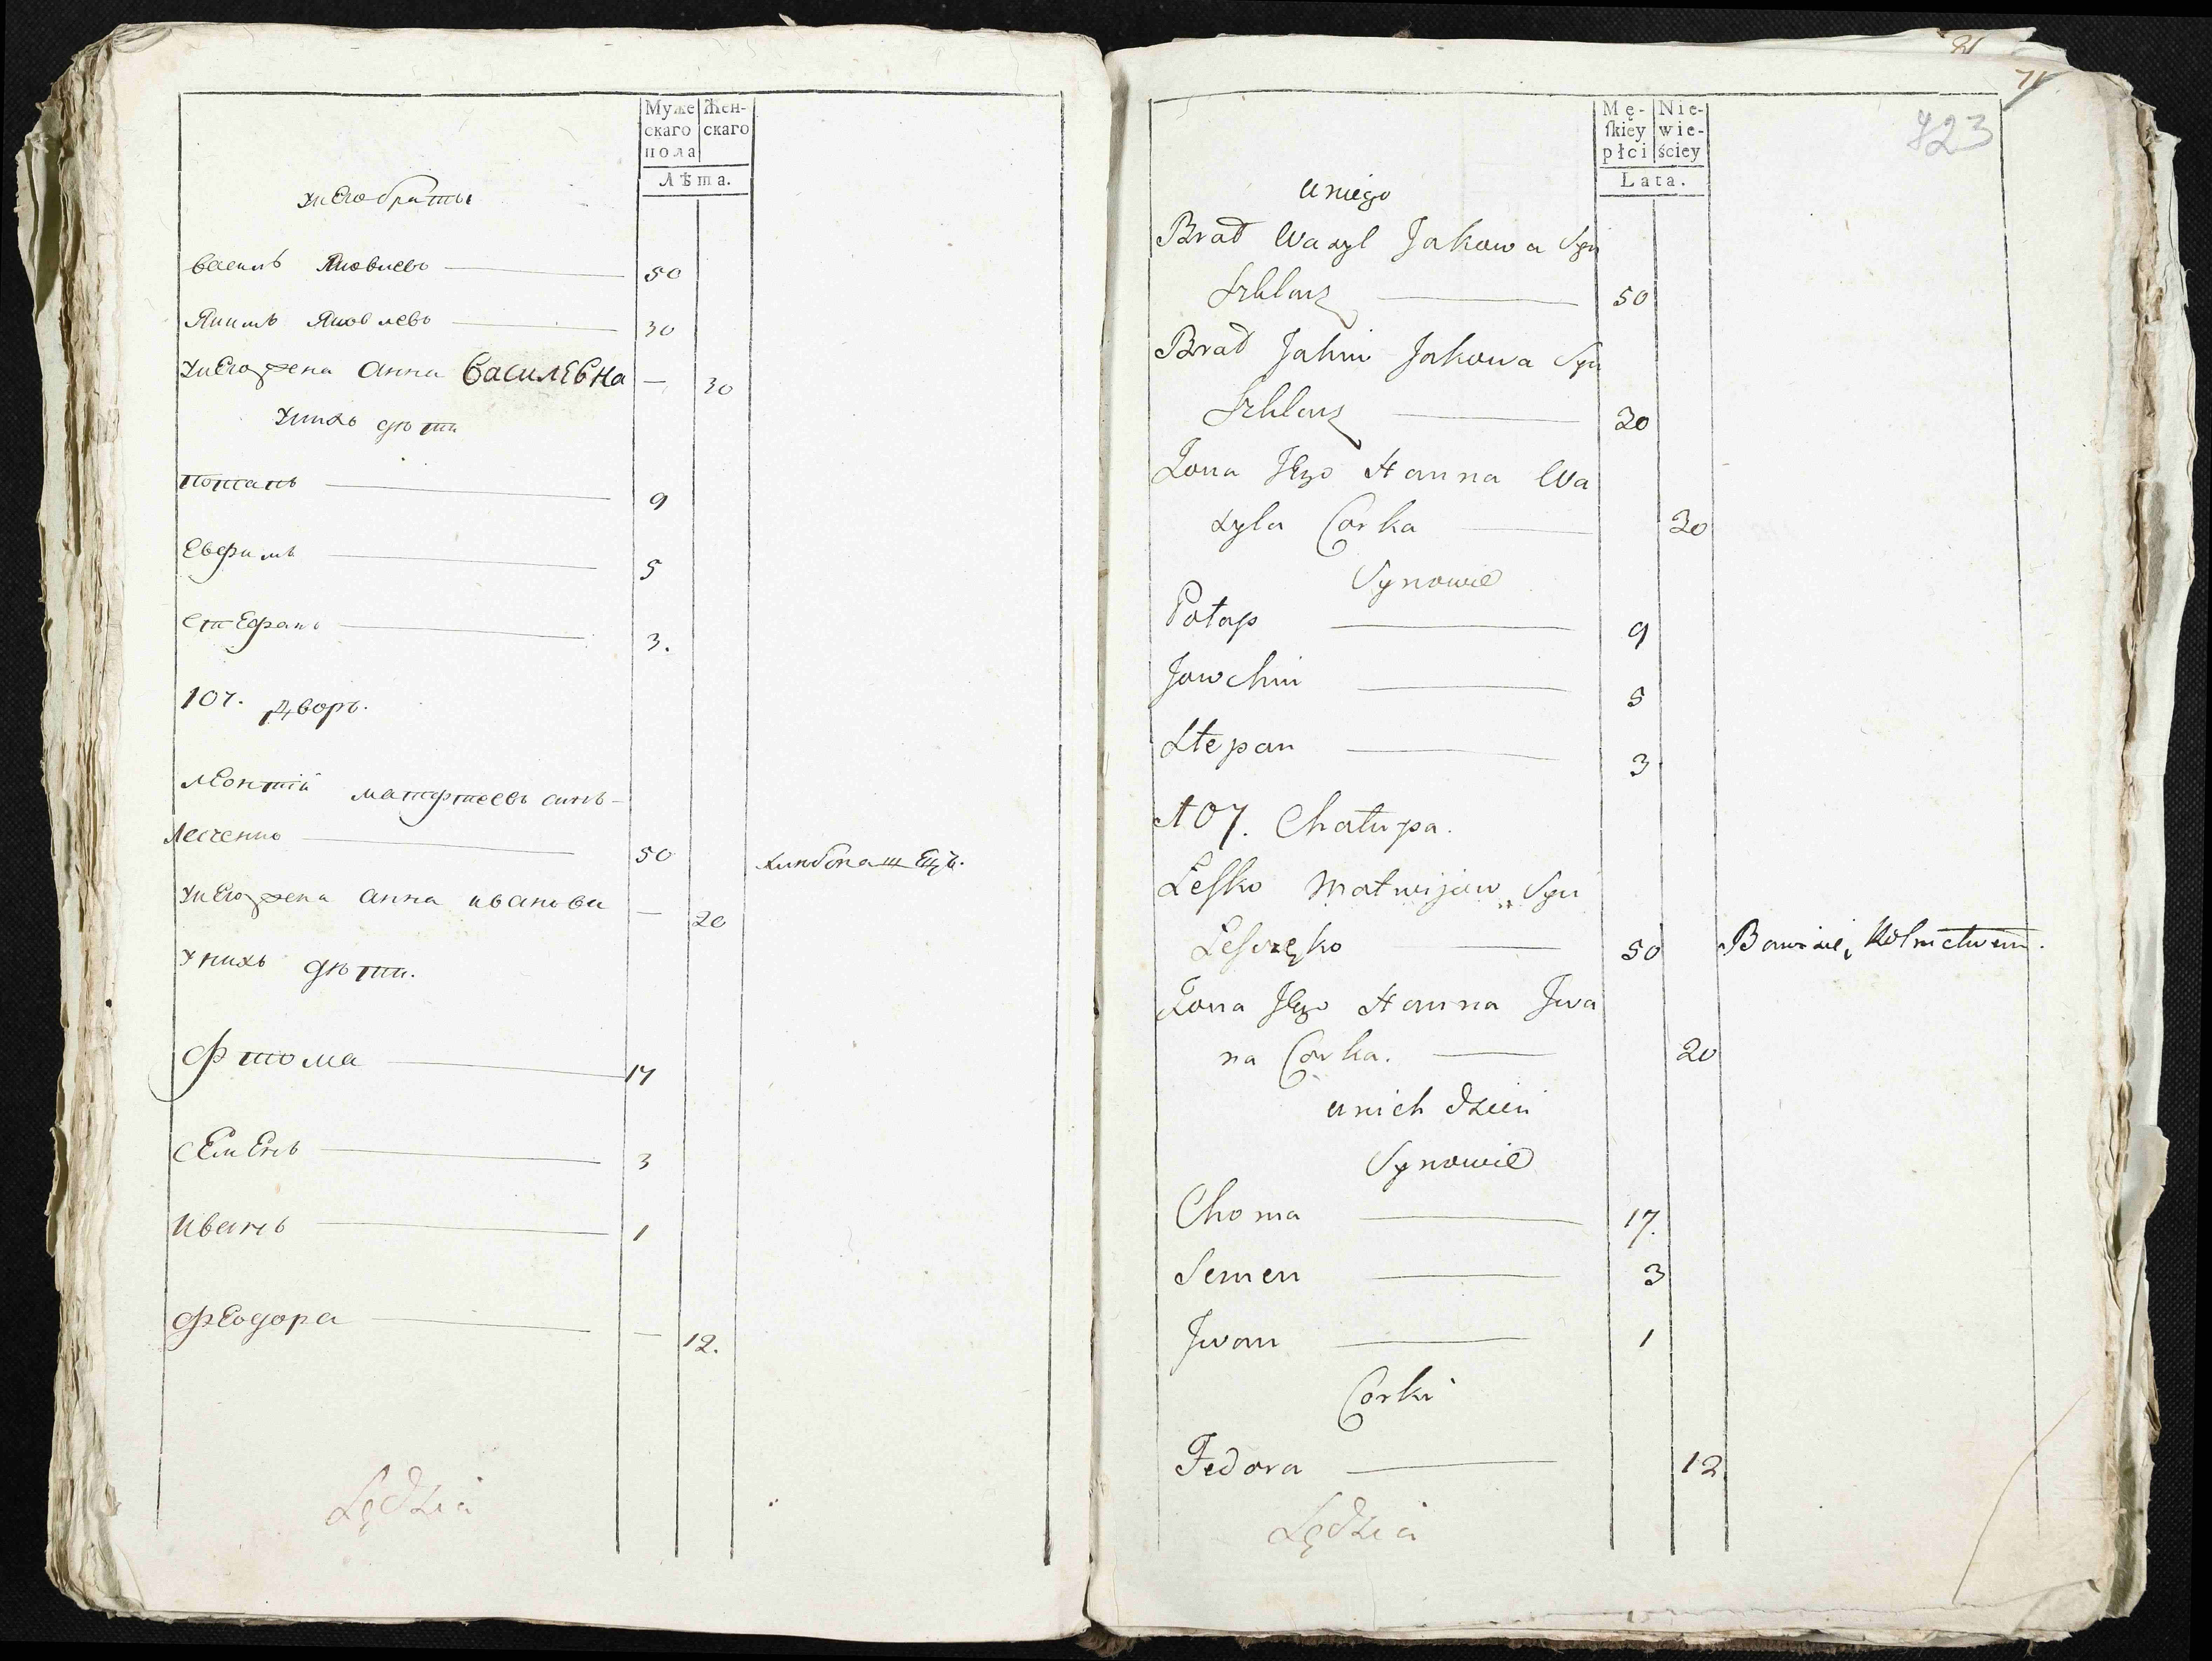 Муже скаго пола
Жен- скаго
Лѣта.
У него браты
Василь Яковлевъ — 50
Якимъ Яковлевъ — 30
У него жена Анна Василевна — 30
У нихъ дѣти
Потапъ — 9
Евфимъ — 5
Стефанъ — 3.
107. дворъ.
Леонтій Матфтеевъ синъ-
Лесченко — 50 хлибопашецъ.
У него жена Анна Иванова — 20
У нихъ дѣти.
Фтома — 17
Семенъ — 3
Иванъ — 1
Феодора — 12.
Lędzia
21
71
423
Mę- skiey płci
Nie- wie- ściey
Lata.
u niego
Brat Wasyl Jakowa Syn
Szklarz — 50
Brat Jakim Jakowa Syn
Szklarz — 30
Zona Jego Hanna Wa
syla Corka — 30
Synowie
Potap — 9
Jowchim — 5
Stepan — 3
107. Chałupa.
Lesko Matwijow Syn
Lesczęko — 50 Bawi się Rolnictwem.
Zona Jego Hanna Jwa
na Corka. — 20
u nich dzieci
Synowie
Choma — 17.
Semen — 3
Jwan — 1
Corki
Fedora — 12
Lędzia